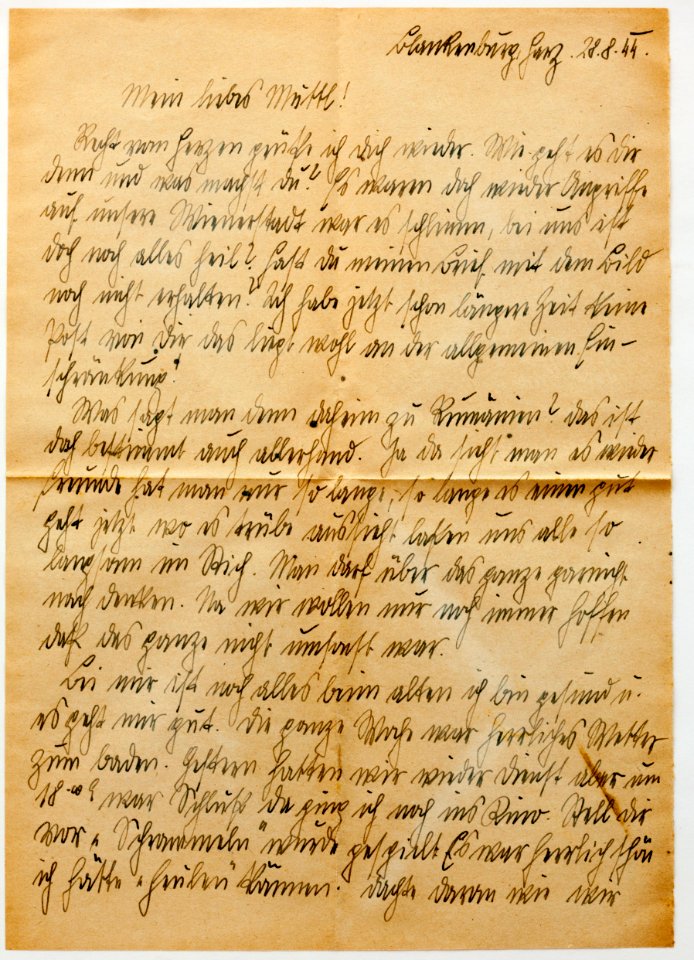 Blankenburg, Harz. 28.8.44.
Mein liebes Muttl!
Recht vom Herzen grüße ich dich wieder. Wie geht es dir
denn und was machst du? Es waren doch wieder Angriffe
auf unsere Wienerstadt war es schlimm, bei uns ist
doch noch alles heil? Hast du meinen Brief mit dem Bild
noch nicht erhalten? Ich habe jetzt schon längere Zeit keine
Post von Dir das liegt wohl an der allgemeinen Ein-
schränkung!
Was sagt man denn daheim zu Rumänien? das ist
doch bestimmt auch allerhand. Ja da sieht man es wieder
Freunde hat man nur so lange, so lange es einem gut
geht jetzt wo es trübe aussieht laßen uns alle so
langsam im Stich. Man darf über das ganze garnicht
nach denken. Na wir wollen nur noch immer hoffen
daß das ganze nicht umsonst war.
Bei mir ist noch alles beim alten ich bin gesund u.
es geht mir gut. Die ganze Woche war herrliches Wetter
zum baden. Gestern hatten wir wieder Dienst aber um
18 war Schluß da ging ich noch ins Kino. Stell dir
vor „Schrammeln" wurde gespielt Es war herrlich schön
ich hätte „heulen" können. dachte daran wie wir